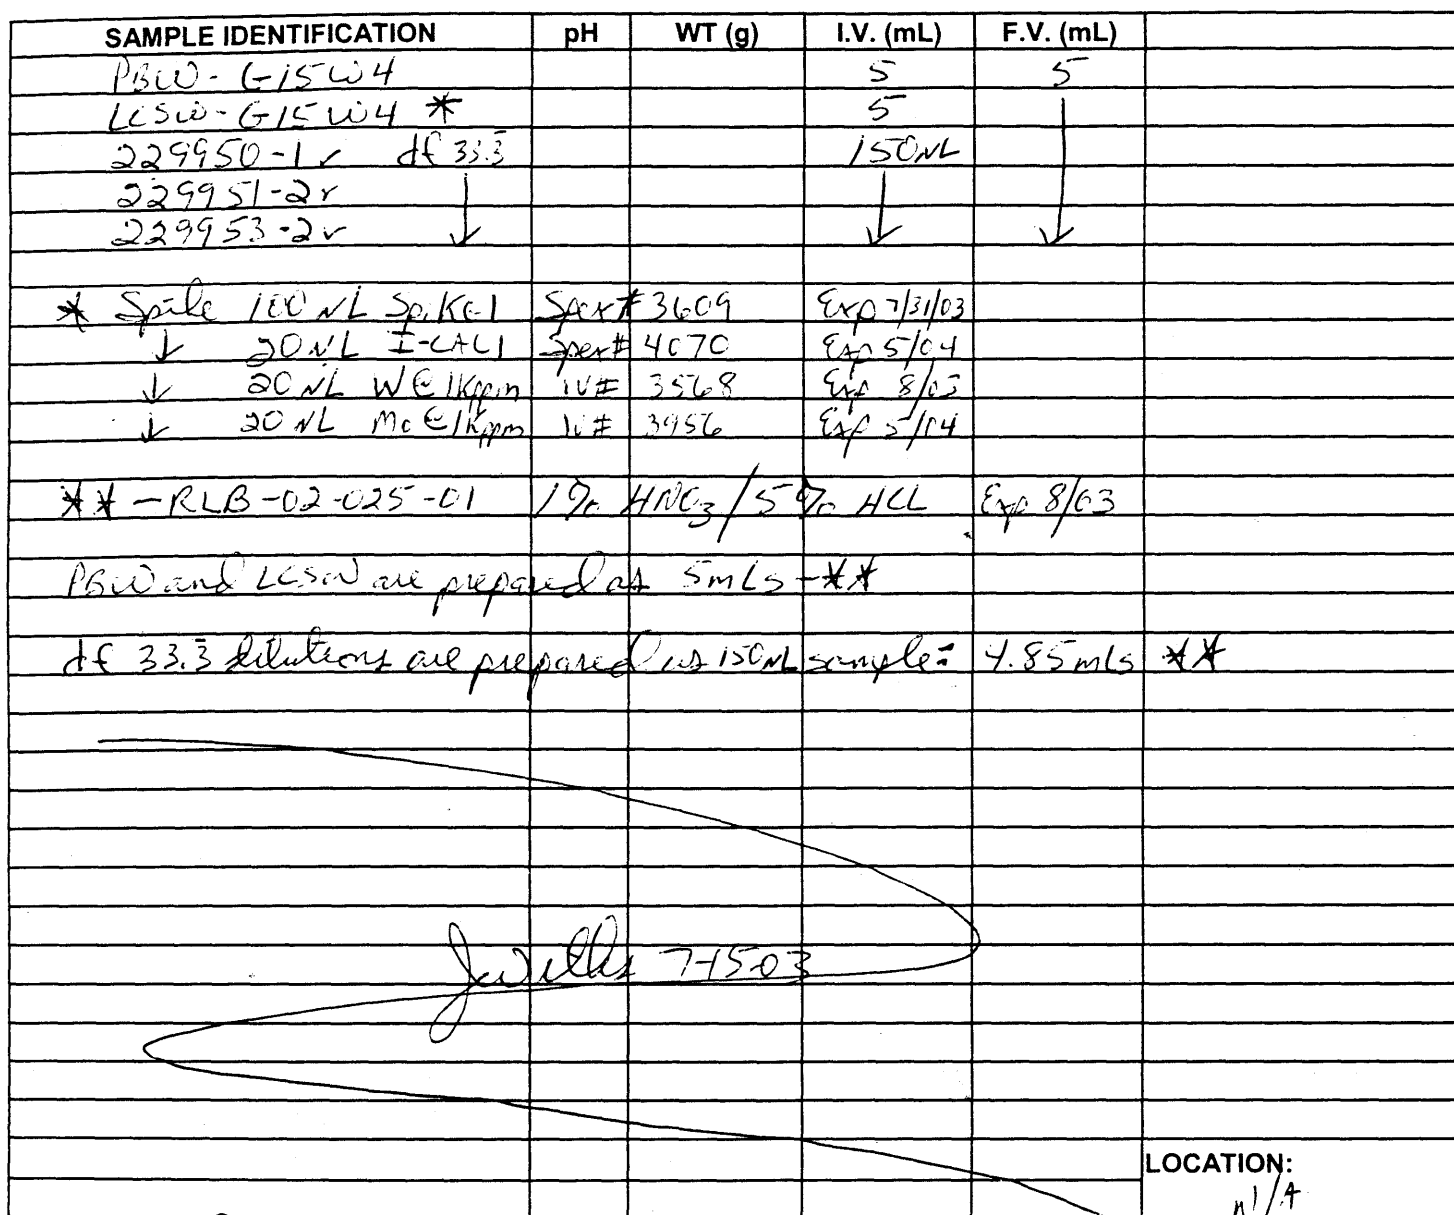 SAMPLE IDENTIFICATION pH WT (g) I.V. (mL) F.V. (mL)
PBW-G15W4 5 5
LCSW-G15W4 * 5 ↓
229950-1 ✓ df 33.3 150µL
229951-2 ✓ ↓ ↓
229953-2 ✓
* Spike 100 µL Spike 1 Spex# 3609 Exp 7/31/03
↓ 20 µL I-CAL1 Spex# 4070 Exp 5/04
↓ 20 µL W @ 1Kppm IV# 3568 Exp 8/03
↓ 20 µL Mo @ 1Kppm IV# 3956 Exp 5/04
** - RLB-02-025-01 1% HNO3/5% HCL Exp 8/03
PBW and LCSW are prepared as 5mLs - **
df 33.3 dilutions are prepared as 150µL sample: 4.85mLs **
JWillis 7-15-03
LOCATION:
N/A